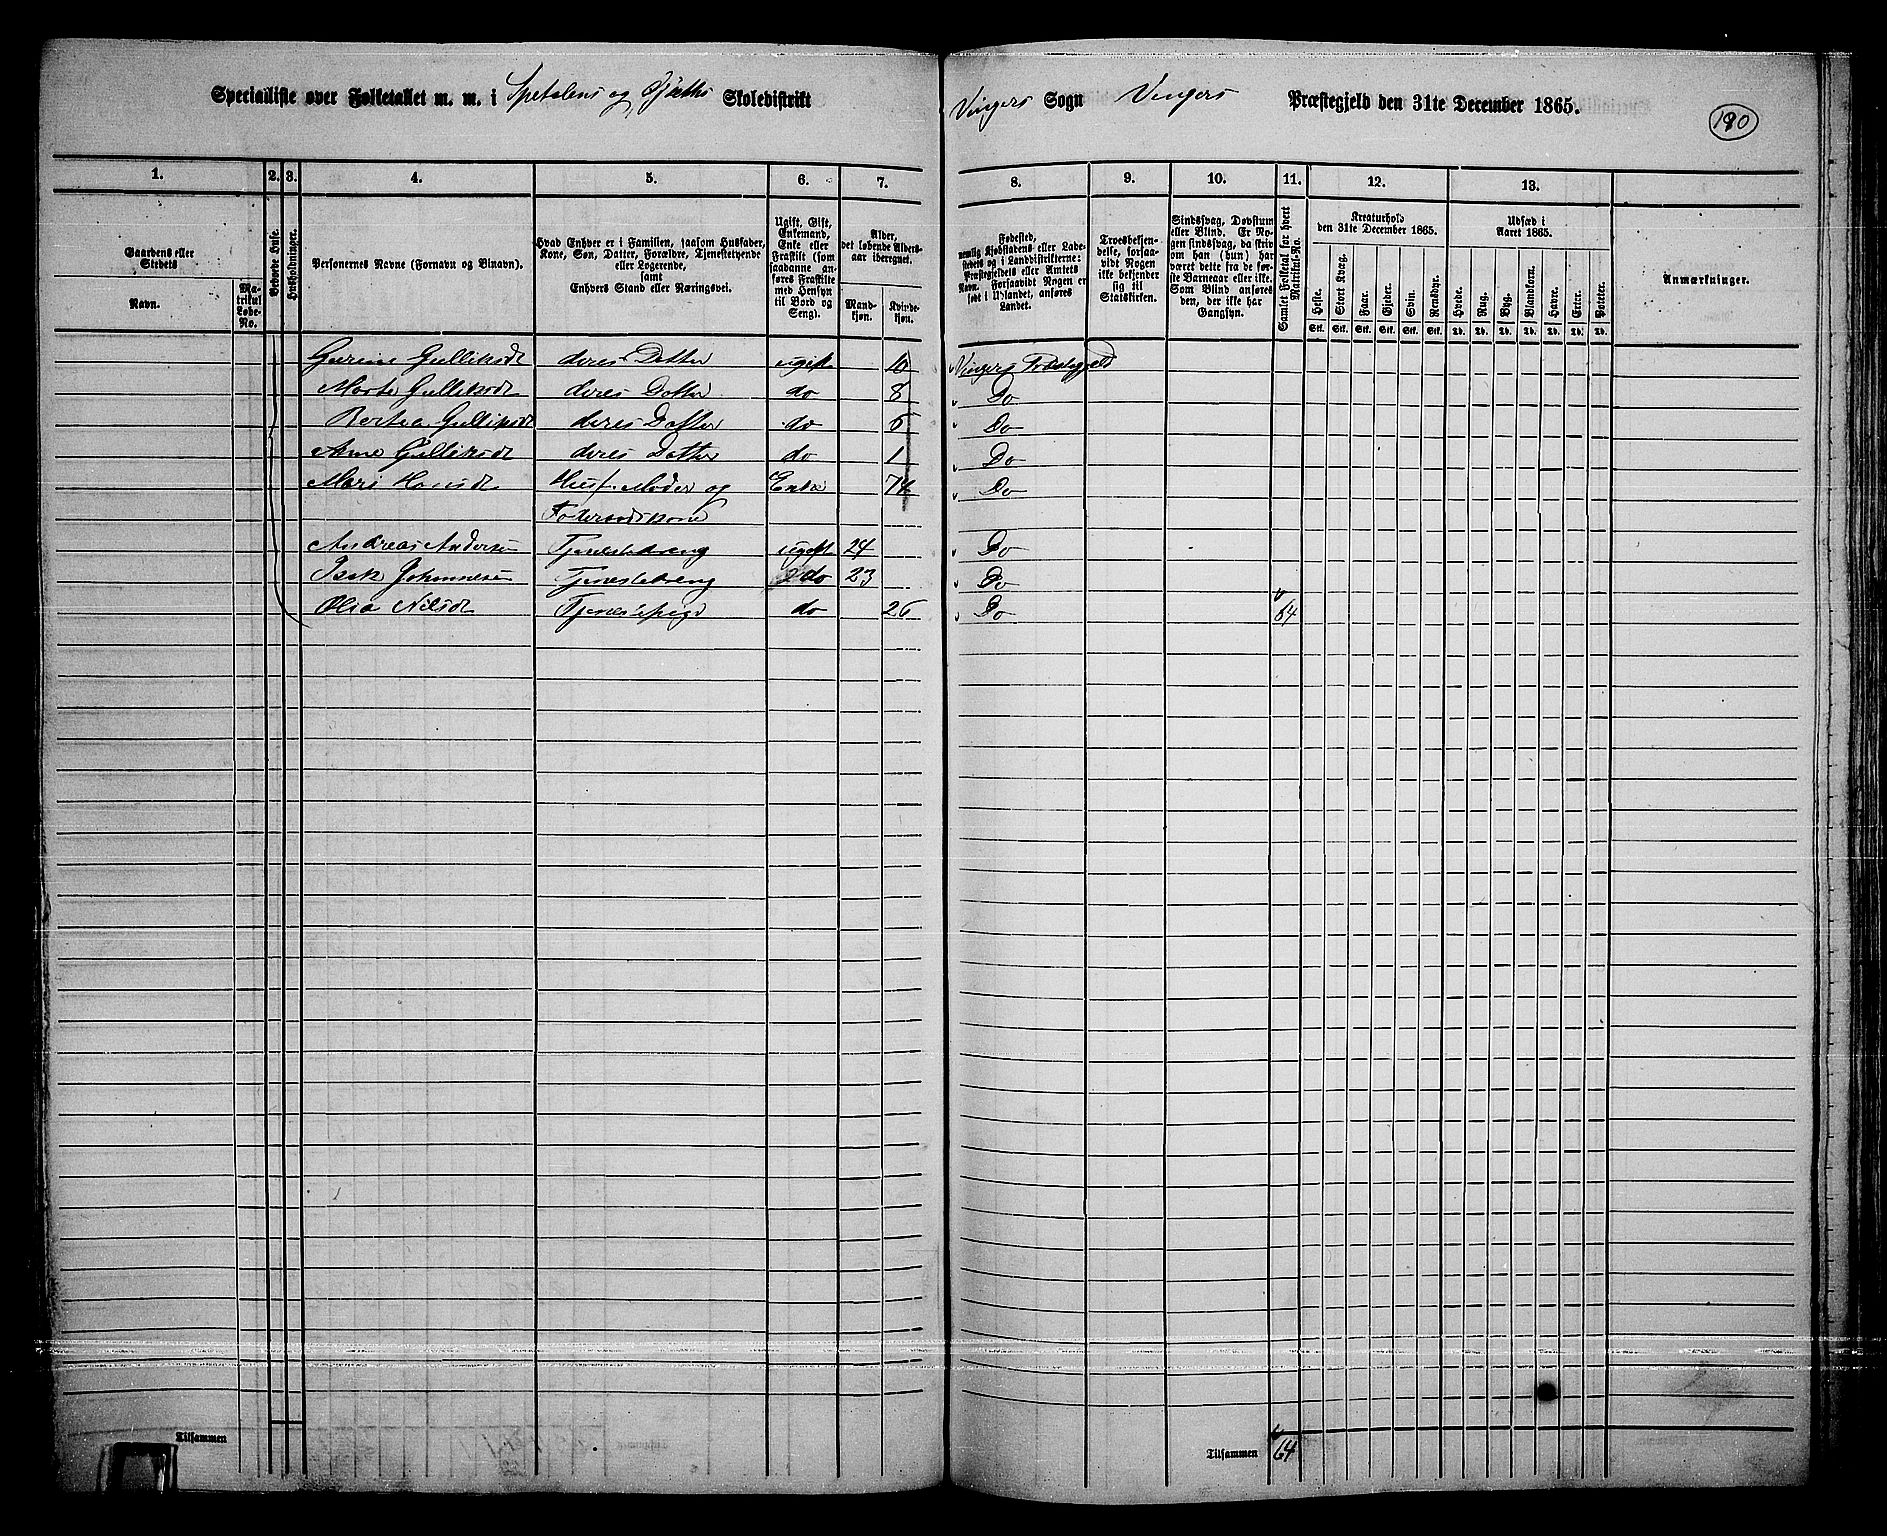 Specialliste over Folketallet m. m. i Spetalens og Skoledistrikt Vingers Sogn Vingers Præstegjeld den 31te December 1865.
190
1. 2. 3. 4. 5. 6. 7. 8. 9. 10. 11. 12. 13.
Gaardens eller Stedets
Navn.
Matrikul Løbe-No.
Beboede Huse.
Husholdninger.
Personernes Navne (Fornavn og Binavn).
Hvad Enhver er i Familien, saasom Husfader, Kone, Søn, Datter, Forældre, Tjenestetyende eller Logerende, samt Enhvers Stand eller Næringsvei.
Ugift, Gift, Enkemand, Enke eller Fraskilt (som saadanne anføres Fraskilte med Hensyn til Bord og Seng).
Alder, det løbende Alders-aar iberegnet.
Mandkjøn.
Kvindekjøn.
Fødested, nemlig Kjøbstadens eller Ladestedets og i Landdistrikterne: Præstegjeldets eller Amtets Navn. Forsaavidt Nogen er født i Udlandet, anføres Landet.
Troesbekjendelse, forsaavidt Nogen ikke bekjender sig til Statskirken.
Sindssvag, Døvstum eller Blind. Er Nogen sindssvag, da skriv om han (hun) har været dette fra de første Barneaar eller ikke. Som Blind anføres den, der ikke har Gangsyn.
Samlet Folketal for hvert Matrikul-No.
Kreaturhold den 31te December 1865.
Heste. Stort Kvæg. Faar. Gjeder. Svin. Rensdyr.
Stk. Stk. Stk. Stk. Stk. Stk.
Udsæd i Aaret 1865.
Hvede. Rug. Byg. Blandkorn. Havre. Erter. Poteter.
Td. Td. Td. Td. Td. Td. Td.
Anmærkninger.
Gulliksdt deres Datter ugift 10 Vingers Præstegjeld
Marte Gulliksdt deres Datter do 8 Do
Bertea Gulliksdt deres Datter do Do
Gulliksdt deres Datter do 1 Do
Mari Hansdt Husf. Moder og Enke 74 Do
Føderaadskone
Andreas Andersen Tjenestedreng ugift 24 Do
Isak Johannesen Tjenestedreng do 23 Do
Olia Nilsdt Tjenestepige do Do 64
Tilsammen
Tilsammen 64